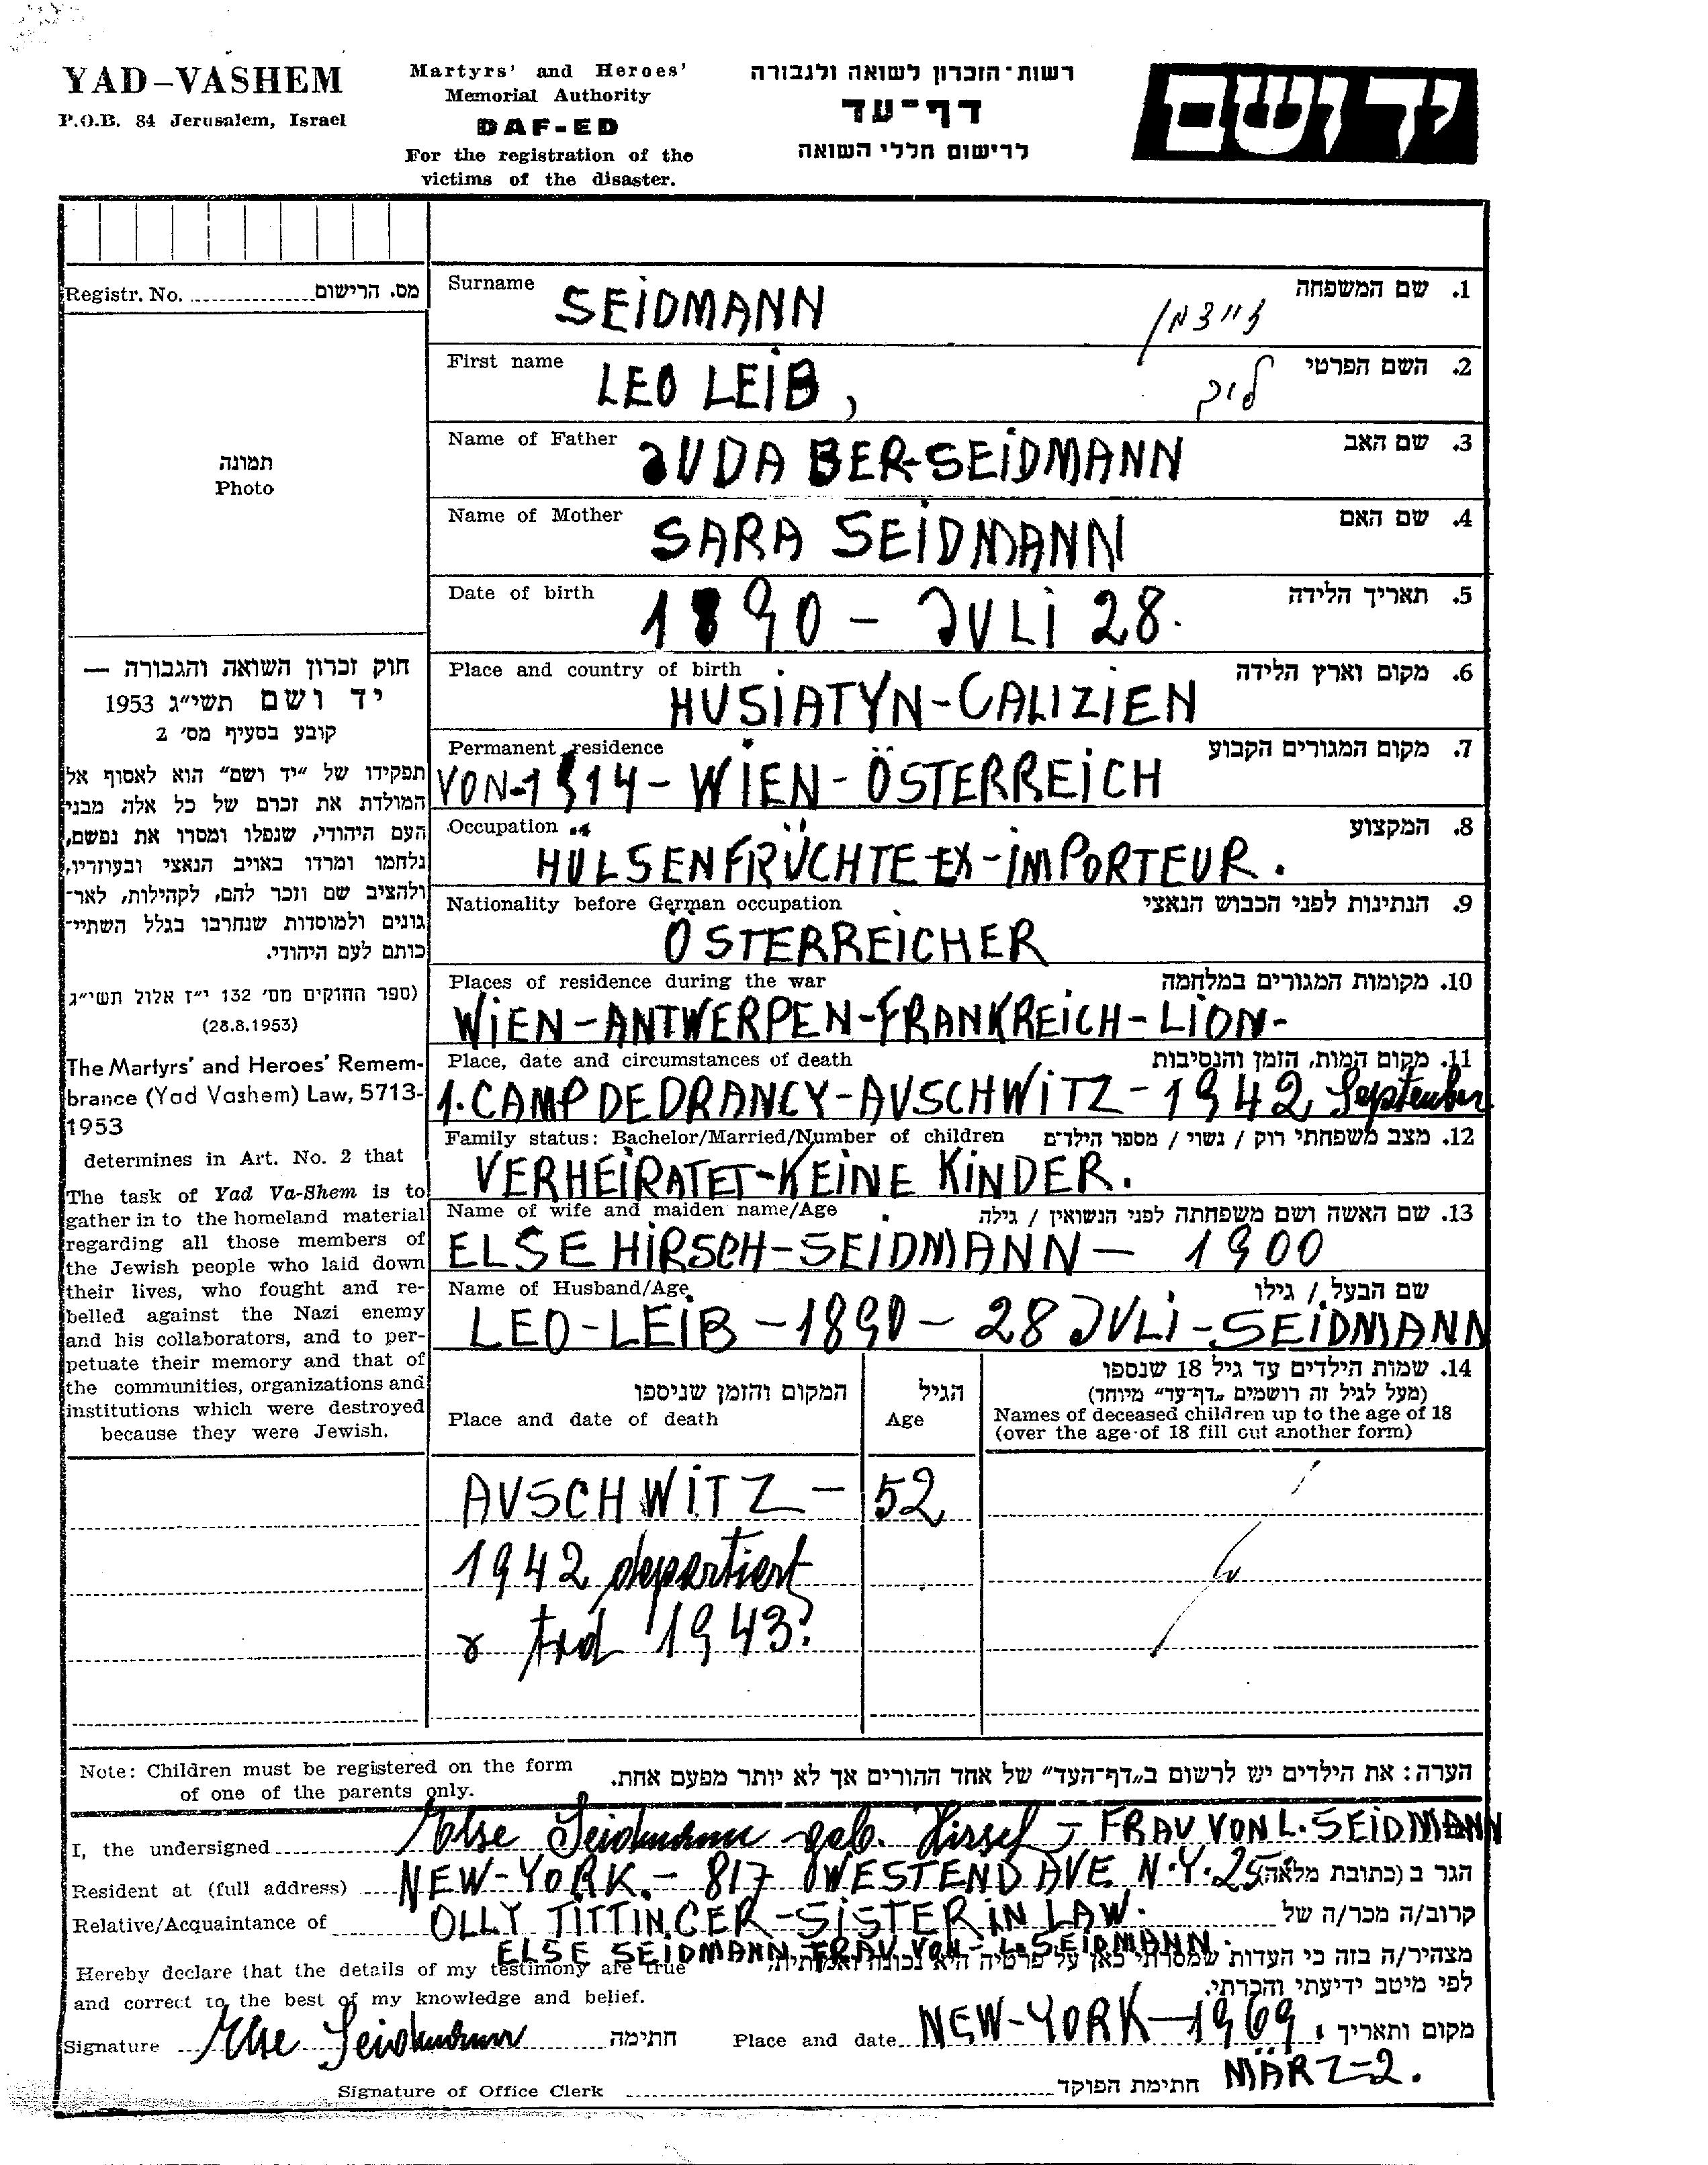 YAD-VASHEM
P.O.B. 84 Jerusalem, Israel
Martyrs' and Heroes'
Memorial Authority
DAF-ED
For the registration of the
victims of the disaster.
רשות-הזכרון לשואה ולגבורה
דף-עד
לרישום חללי השואה
יד ושם
Registr. No. מס. הרישום
תמונה
Photo
חוק זכרון השואה והגבורה —
יד ושם תשי״ג 1953
קובע בסעיף מס׳ 2
תפקידו של ״יד ושם״ הוא לאסוף אל
המולדת את זכרם של כל אלה מבני
העם היהודי, שנפלו ומסרו את נפשם,
נלחמו ומרדו באויב הנאצי ובעוזריו,
ולהציב שם וזכר להם, לקהילות, לאר-
גונים ולמוסדות שנחרבו בגלל השתיי-
כותם לעם היהודי.
(ספר החוקים מס׳ 132 י״ז אלול תשי״ג
(28.8.1953)
The Martyrs' and Heroes' Remem-
brance (Yad Vashem) Law, 5713-
1953
determines in Art. No. 2 that
The task of Yad Va-Shem is to
gather in to the homeland material
regarding all those members of
the Jewish people who laid down
their lives, who fought and re-
belled against the Nazi enemy
and his collaborators, and to per-
petuate their memory and that of
the communities, organizations and
institutions which were destroyed
because they were Jewish.
Surname SEIDMANN זיידמן 1. שם המשפחה
First name LEO LEIB, 2. השם הפרטי
Name of Father JUDA BER-SEIDMANN 3. שם האב
Name of Mother SARA SEIDMANN 4. שם האם
Date of birth 1890 - JULI 28. 5. תאריך הלידה
Place and country of birth 6. מקום וארץ הלידה
HUSIATYN-GALIZIEN
Permanent residence 7. מקום המגורים הקבוע
VON-1914-WIEN-ÖSTERREICH
Occupation 8. המקצוע
HÜLSENFRÜCHTE-EX-IMPORTEUR.
Nationality before German occupation 9. הנתינות לפני הכבוש הנאצי
ÖSTERREICHER
Places of residence during the war 10. מקומות המגורים במלחמה
WIEN-ANTWERPEN-FRANKREICH-LION-
Place, date and circumstances of death 11. מקום המות, הזמן והנסיבות
1. CAMP DE DRANCY-AUSCHWITZ-1942 September
Family status: Bachelor/Married/Number of children 12. מצב משפחתי רוק / נשוי / מספר הילדים
VERHEIRATET-KEINE KINDER.
Name of wife and maiden name/Age 13. שם האשה ושם משפחתה לפני הנשואין / גילה
ELSE HIRSCH-SEIDMANN- 1900
Name of Husband/Age שם הבעל / גילו
LEO-LEIB-1890-28 JULI-SEIDMANN
המקום והזמן שניספו
Place and date of death
הגיל
Age
14. שמות הילדים עד גיל 18 שנספו
(מעל לגיל זה רושמים „דף-עד״ מיוחד)
Names of deceased children up to the age of 18
(over the age of 18 fill out another form)
AUSCHWITZ- 52
1942 deportiert
tod 1943?
Note: Children must be registered on the form
of one of the parents only.
הערה: את הילדים יש לרשום ב„דף-העד״ של אחד ההורים אך לא יותר מפעם אחת.
I, the undersigned Else Seidmann geb. Hirsch - FRAU VON L. SEIDMANN
Resident at (full address) NEW-YORK.- 817 WESTEND AVE N.Y. 25 הגר ב (כתובת מלאה)
Relative/Acquaintance of OLLY TITTINGER-SISTER IN LAW. קרוב/ה מכר/ה של
ELSE SEIDMANN FRAU VON-L. SEIDMANN.
Hereby declare that the details of my testimony are true
and correct to the best of my knowledge and belief.
מצהיר/ה בזה כי העדות שמסרתי כאן על פרטיה היא נכונה ואמתית,
לפי מיטב ידיעתי והכרתי.
Signature Else Seidmann חתימה Place and date NEW-YORK-1969, מקום ותאריך
MÄRZ-2.
Signature of Office Clerk חתימת הפוקד